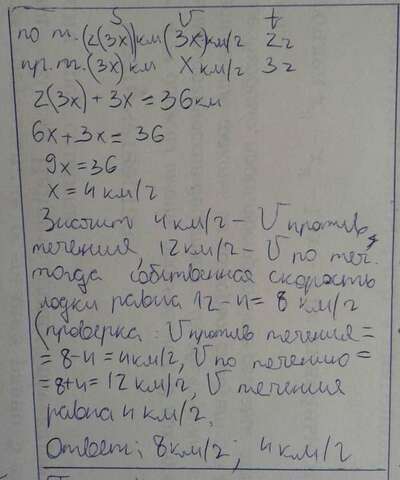 S V t
по т. (2(3x)) км (3x) км/г 2г
пр. т. (3x) км x км/г 3г
2(3x) + 3x = 36 км
6x + 3x = 36
9x = 36
x = 4 км/г
Значит 4 км/г - V против
течения, 12 км/г - V по теч.
тогда собственная скорость
лодки равна 12 - 4 = 8 км/г
(проверка: V против течения =
= 8 - 4 = 4 км/г, V по течению =
= 8 + 4 = 12 км/г, V течения
равна 4 км/г.
Ответ: 8 км/г; 4 км/г